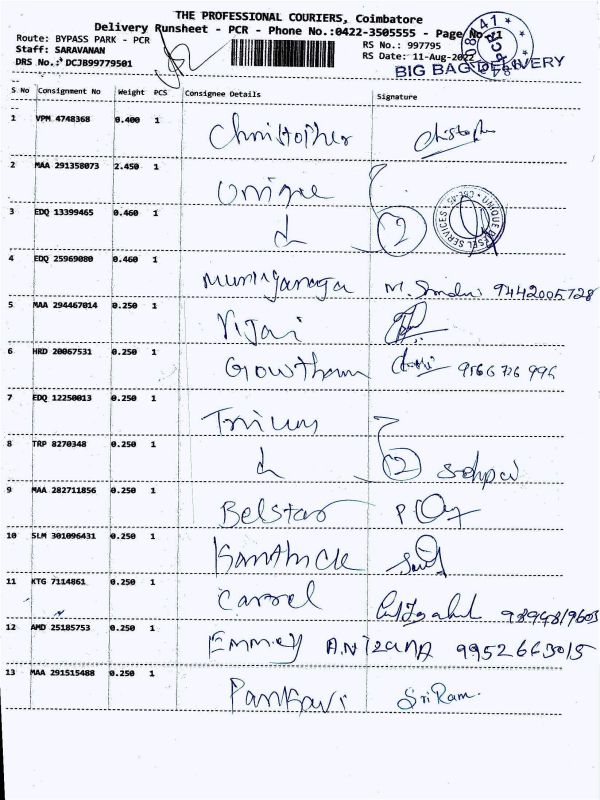 THE PROFESSIONAL COURIERS, Coimbatore
Delivery Runsheet - PCR - Phone No.:0422-3505555 - Page No.:1
Route: BYPASS PARK - PCR
RS No.: 997795
Staff: SARAVANAN
RS Date: 11-Aug-2022
DRS No.: DCJB99779501
BIG BAG DELIVERY
S No Consignment No Weight PCS Consignee Details Signature
1 VPM 4748368 0.400 1 Christopher Christopher
2 MAA 291358073 2.450 1 Unique
3 EDQ 13399465 0.460 1 2
4 EDQ 25969080 0.460 1 M. 9442005728
5 MAA 294467014 0.250 1 Vijai
6 HRD 20067531 0.250 1 Gowtham 9566 726 996
7 EDQ 12250013 0.250 1
8 TRP 8270348 0.250 1 2
9 MAA 282711856 0.250 1 Belstar
10 SLM 301096431 0.250 1
11 KTG 7114861 0.250 1 Carrel
12 AMD 25185753 0.250 1 9952663015
13 MAA 291515488 0.250 1 Sri Ram.